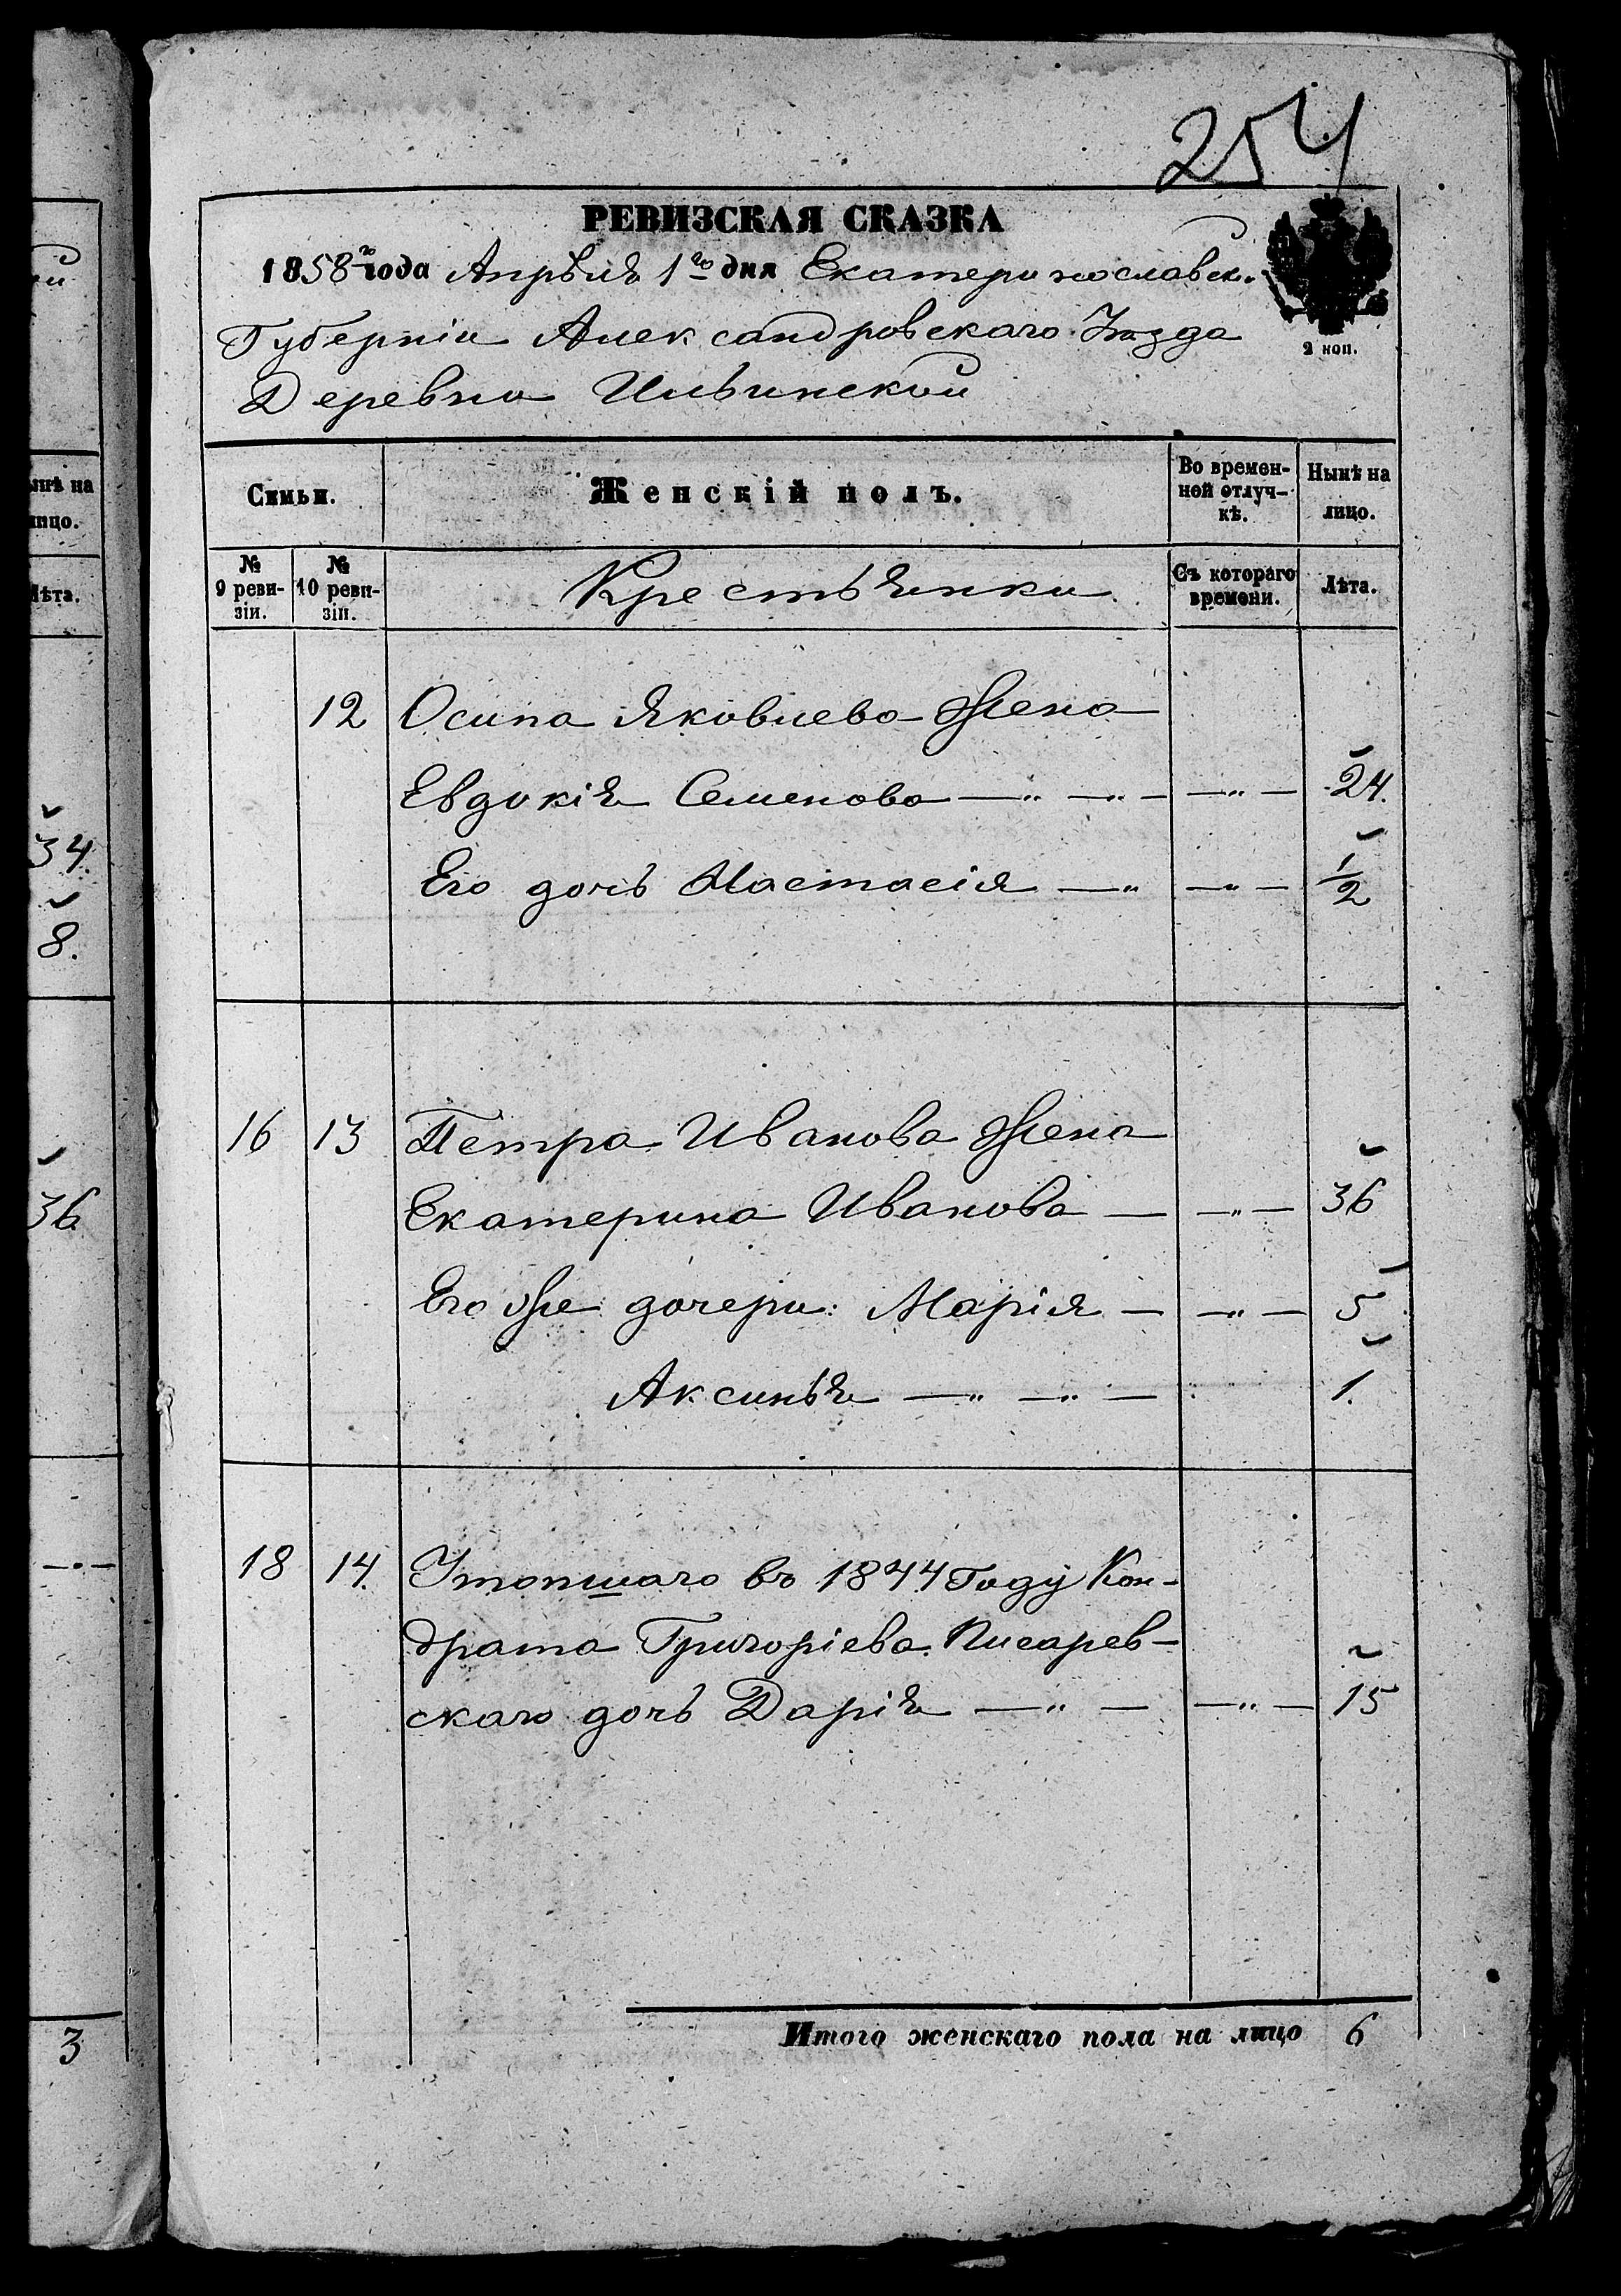 254
РЕВИЗСКАЯ СКАЗКА
1858го года Апрѣля 1го дня Екатеринославск.
2 коп.
Губерніи Александровскаго Уѣзда
Деревни Ильинской
Симьи.
Женскій полъ.
Во времен-
ной отлуч-
кѣ.
Нынѣ на
лицо.
№
9 реви-
зіи.
№
10 реви-
зіи.
Крестьянки.
Съ котораго
времени.
Лѣта.
12 Осипа Яковлева жена
Евдокія Семенова —„ —„— —„— 24.
Его дочь Настасія —„ —„— 1/2
16 13 Петра Иванова жена
Екатерина Иванова — —„— 36
Его же дочери: Марія — —„— 5
Аксинья —„ —„ — 1.
18 14. Утопшаго въ 1844 году Кон-
драта Григоріева Писарев-
скаго дочь Дарія —„ — —„— 15
Итого женскаго пола на лицо 6
ынѣ на
лицо.
Лѣта.
34.
8.
36
3